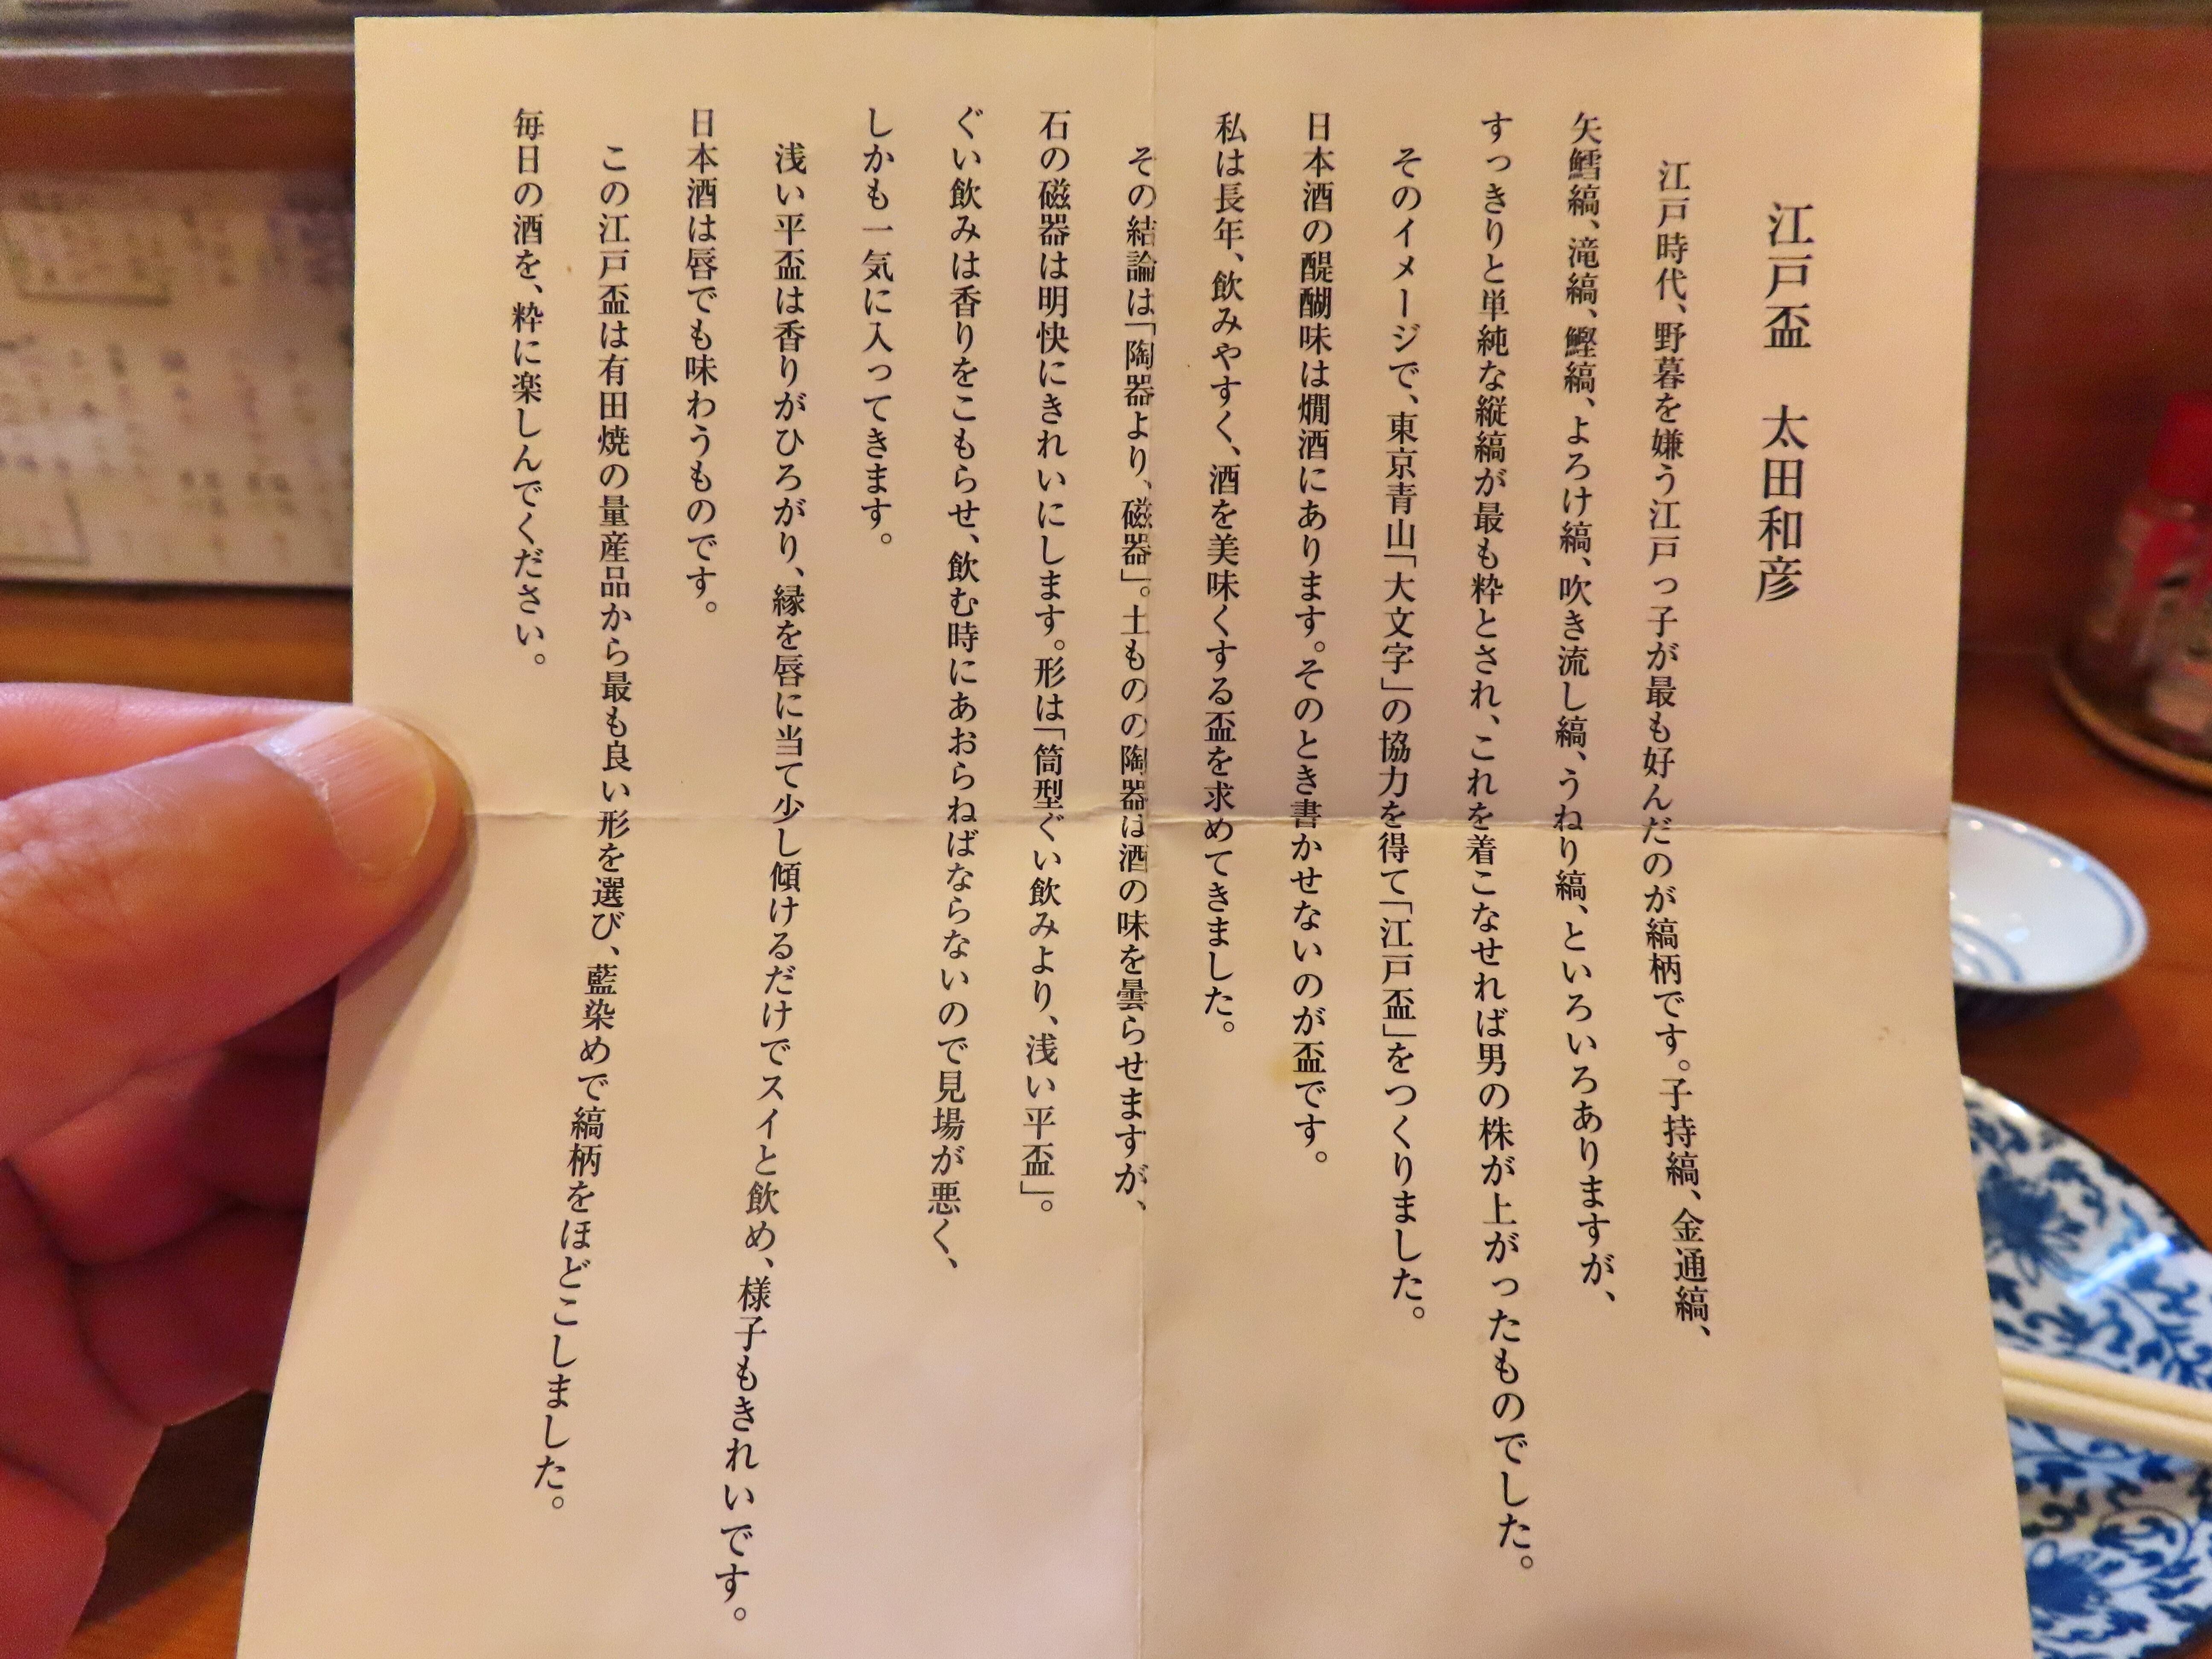 江戸盃　太田和彦
江戸時代、野暮を嫌う江戸っ子が最も好んだのが縞柄です。子持縞、金通縞、
矢鱈縞、滝縞、鰹縞、よろけ縞、吹き流し縞、うねり縞、といろいろありますが、
すっきりと単純な縦縞が最も粋とされ、これを着こなせれば男の株が上がったものでした。
そのイメージで、東京青山「大文字」の協力を得て「江戸盃」をつくりました。
日本酒の醍醐味は燗酒にあります。そのとき書かせないのが盃です。
私は長年、飲みやすく、酒を美味くする盃を求めてきました。
その結論は「陶器より、磁器」。土ものの陶器は酒の味を曇らせますが、
石の磁器は明快にきれいにします。形は「筒型ぐい飲みより、浅い平盃」。
ぐい飲みは香りをこもらせ、飲む時にあおらねばならないので見場が悪く、
しかも一気に入ってきます。
浅い平盃は香りがひろがり、縁を唇に当て少し傾けるだけでスイと飲め、様子もきれいです。
日本酒は唇でも味わうものです。
この江戸盃は有田焼の量産品から最も良い形を選び、藍染めで縞柄をほどこしました。
毎日の酒を、粋に楽しんでください。